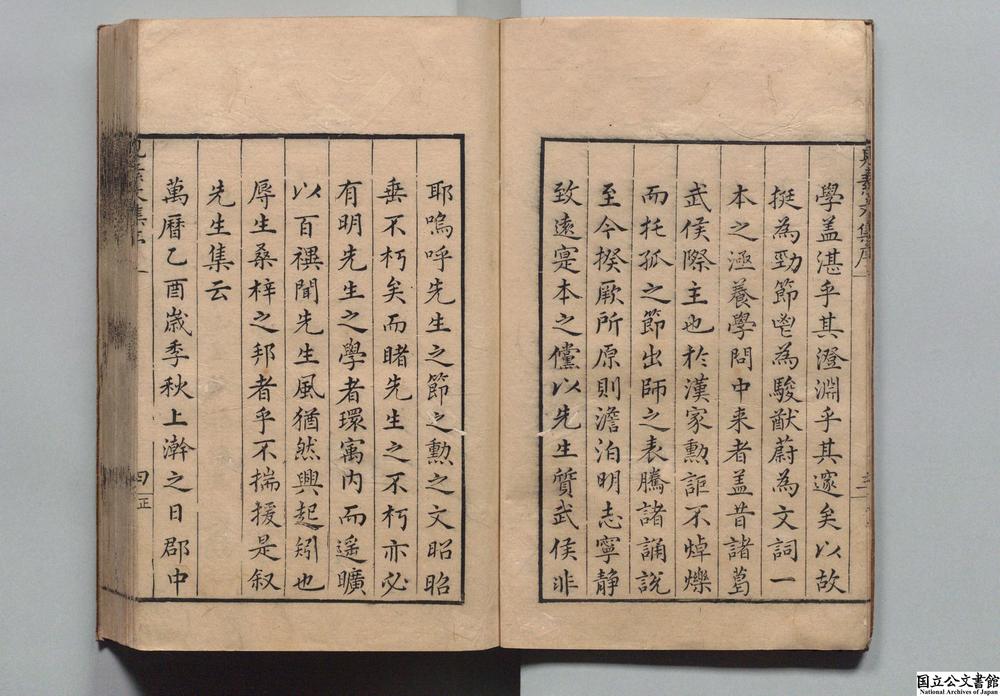 學盖湛乎其澄淵乎其邃矣以故
挺為勁節鬯為駿猷蔚為文詞一
本之涵養學問中来者盖昔諸葛
武侯際主也於漢家勲詎不焯爍
而托孤之節出師之表騰諸誦説
至今揆厥所原則澹泊明志寧静
致遠寔本之儻以先生質武侯非
耶嗚呼先生之節之勲之文昭昭
垂不朽矣而睹先生之不朽亦必
有明先生之學者環㝢内而遥曠
以百禩聞先生風猶然興起矧也
辱生桑梓之邦者乎不揣援是叙
先生集云
萬曆乙酉歳季秋上澣之日郡中
四
正
国立公文書館
National Archives of Japan